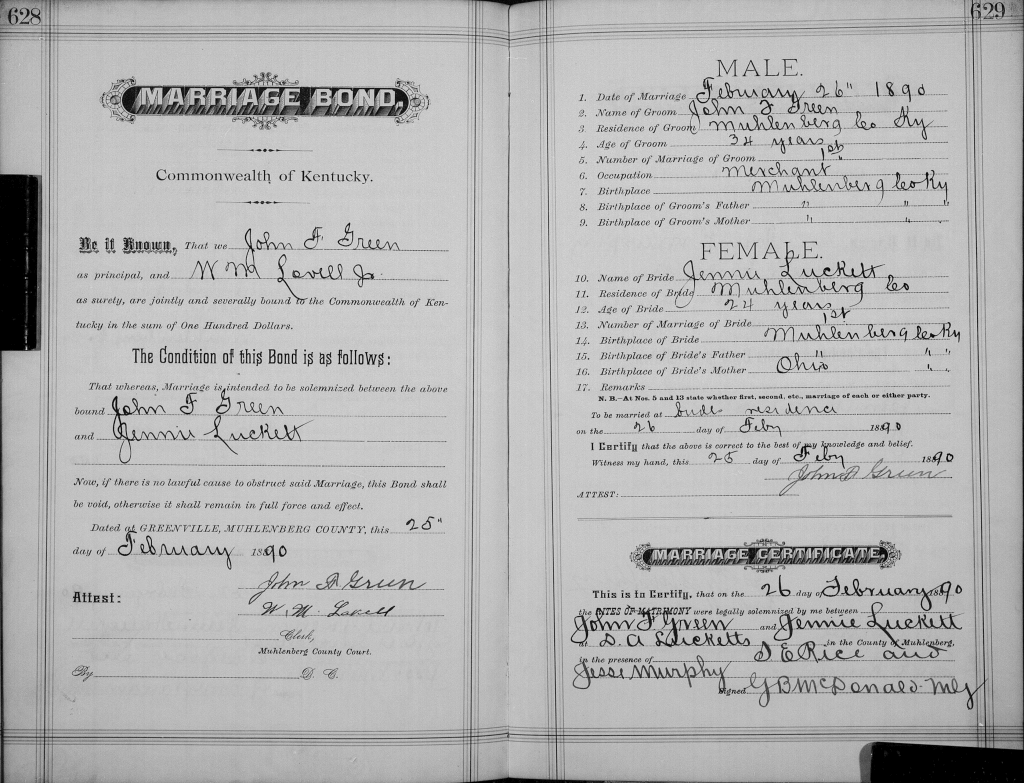 628
MARRIAGE BOND.
Commonwealth of Kentucky.
Be it Known, That we John F Green
as principal, and W M Lovell Jr.
as surety, are jointly and severally bound to the Commonwealth of Ken-
tucky in the sum of One Hundred Dollars.
The Condition of this Bond is as follows:
That whereas, Marriage is intended to be solemnized between the above
bound John F Green
and Jennie Luckett
Now, if there is no lawful cause to obstruct said Marriage, this Bond shall
be void, otherwise it shall remain in full force and effect.
Dated at GREENVILLE, MUHLENBERG COUNTY, this 25"
day of February 1890
Attest:
John Green
W. M. Lovell
Clerk,
Muhlenberg County Court.
By D. C.
629
MALE.
1. Date of Marriage February 26" 1890
2. Name of Groom John F Green
3. Residence of Groom Muhlenberg Co Ky
4. Age of Groom 34 years
5. Number of Marriage of Groom 1st
6. Occupation Merchant
7. Birthplace Muhlenberg Co Ky
8. Birthplace of Groom's Father " " "
9. Birthplace of Groom's Mother " " "
FEMALE.
10. Name of Bride Jennie Luckett
11. Residence of Bride Muhlenberg Co
12. Age of Bride 24 years
13. Number of Marriage of Bride 1st
14. Birthplace of Bride Muhlenberg Co Ky
15. Birthplace of Bride's Father " " "
16. Birthplace of Bride's Mother Ohio " "
17. Remarks
N. B.—At Nos. 5 and 13 state whether first, second, etc., marriage of each or either party.
To be married at brides residence
on the 26 day of Feby 1890
I Certify that the above is correct to the best of my knowledge and belief.
Witness my hand, this 25 day of Feby 1890
John Green
ATTEST:
MARRIAGE CERTIFICATE.
This is to Certify, that on the 26 day of February 1890
the RITES OF MATRIMONY were legally solemnized by me between
John F Green and Jennie Luckett
at D. A Lucketts in the County of Muhlenberg,
in the presence of J E Rice and
Jesse Murphy
Signed G B McDonald Mlg